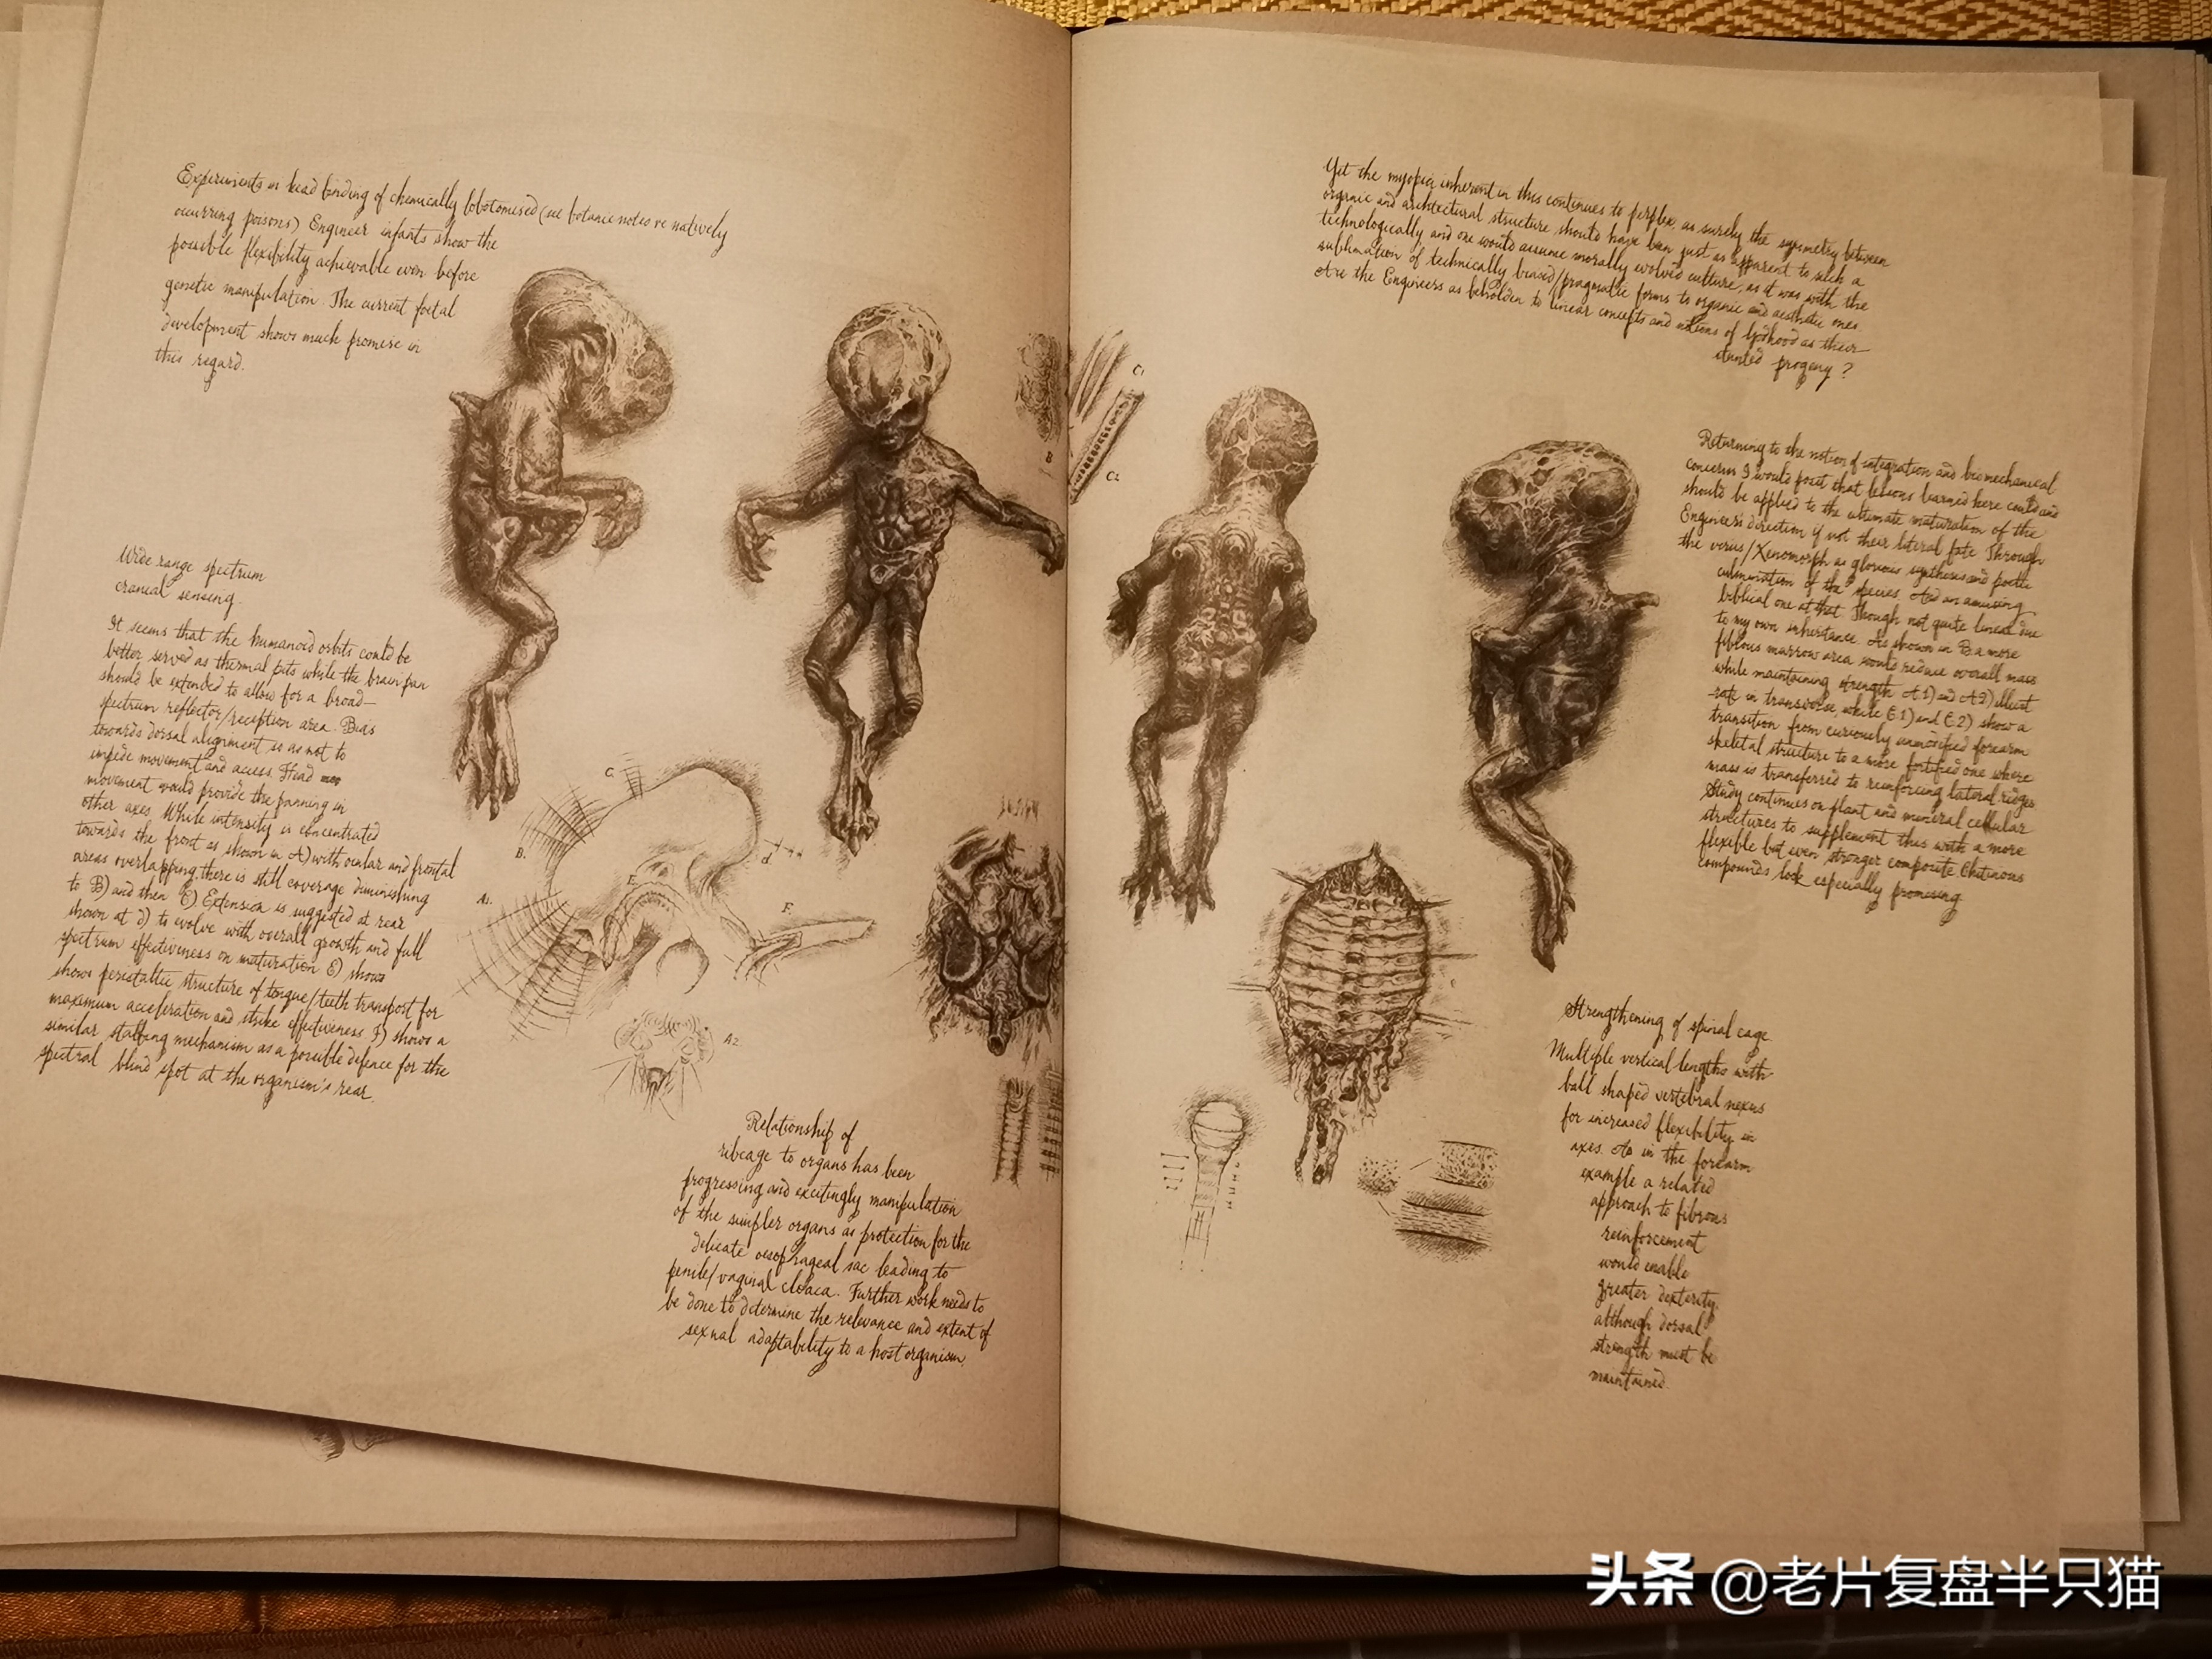 Experiments in head binding of chemically lobotomised (see botanic notes re natively
occurring poisons) Engineer infants show the
possible flexibility achievable even before
genetic manipulation. The current foetal
development shows much promise in
this regard.
Wide range spectrum
cranial sensing.
It seems that the humanoid orbits could be
better served as thermal pits while the brain pan
should be extended to allow for a broad-
spectrum reflector/reception area. Bias
towards dorsal alignment is as not to
impede movement and access. Head
movement would provide the panning in
other axes. While intensity is concentrated
towards the front as shown in A) with ocular and frontal
areas overlapping, there is still coverage diminishing
to B) and then C) Extension is suggested at rear
shown at d) to evolve with overall growth and full
spectrum effectiveness on maturation. E) shows
shows peristaltic structure of tongue/teeth transport for
maximum acceleration and strike effectiveness. F) shows a
similar stabbing mechanism as a possible defence for the
spectral blind spot at the organism's rear.
C.
B.
d
A1.
E.
F.
A2.
Relationship of
ribcage to organs has been
progressing and excitingly manipulation
of the simpler organs as protection for the
delicate oesophageal sac leading to
penile/vaginal cloaca. Further work needs to
be done to determine the relevance and extent of
sexual adaptability to a host organism.
B
C1
C2
Yet the myopia inherent in this continues to perplex, as surely the symmetry between
organic and architectural structure should have been just as apparent to such a
technologically and one would assume morally evolved culture, as it was with the
sublimation of technically biased/pragmatic forms to organic and aesthetic ones.
Are the Engineers as beholden to linear concepts and notions of godhood as their
stunted progeny?
Returning to the notion of integration and biomechanical
concerns I would posit that lessons learned here could and
should be applied to the ultimate maturation of the
Engineer's direction if not their literal fate. Through
the virus/Xenomorph as glorious synthesis and poetic
culmination of the species. And an amusing
biblical one at that. Though not quite linear due
to my own inheritance. As shown in B a more
fibrous marrow area would reduce overall mass
while maintaining strength. A1) and A2) illust
-rate in transverse, while C1) and C2) show a
transition from curiously unmodified forearm
skeletal structure to a more fortified one where
mass is transferred to reinforcing lateral ridges.
Study continues on plant and mineral cellular
structures to supplement this with a more
flexible but even stronger composite. Chitinous
compounds look especially promising.
Strengthening of spinal cage.
Multiple vertical lengths with
ball shaped vertebral nexus
for increased flexibility in
axes. As in the forearm
example a related
approach to fibrous
reinforcement
would enable
greater dexterity,
although dorsal
strength must be
maintained.
头条 @老片复盘半只猫